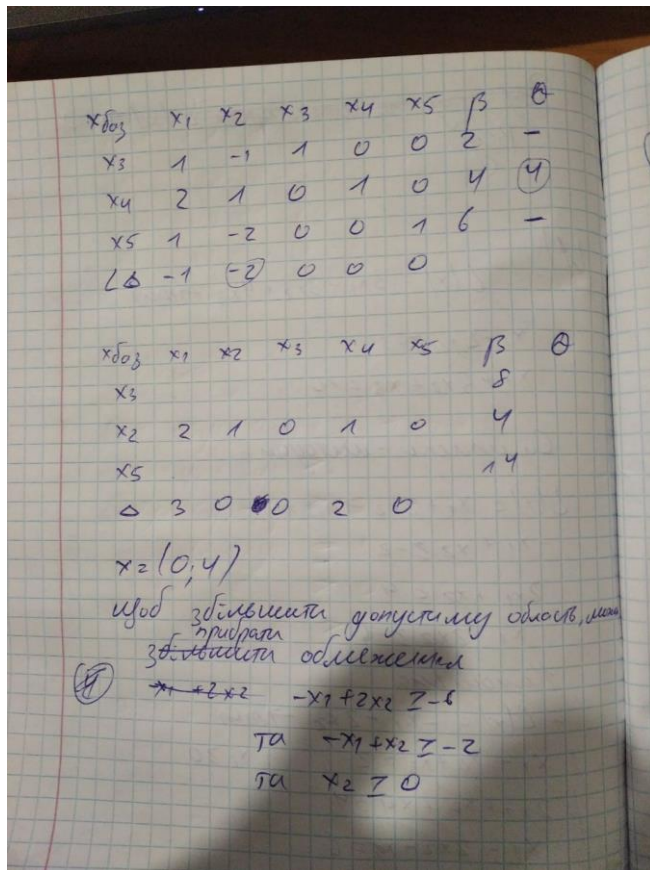 xбаз x1 x2 x3 x4 x5 β θ
x3 1 -1 1 0 0 2 -
x4 2 1 0 1 0 4 4
x5 1 -2 0 0 1 6 -
Δ -1 -2 0 0 0
xбаз x1 x2 x3 x4 x5 β θ
x3 8
x2 2 1 0 1 0 4
x5 14
Δ 3 0 0 2 0
x=(0;4)
Щоб збільшити допустиму область,
прибрати
збільшити обмеження
x1 +2x2 -x1+2x2 ≥-6
та -x1+x2 ≥ -2
та x2 ≥ 0